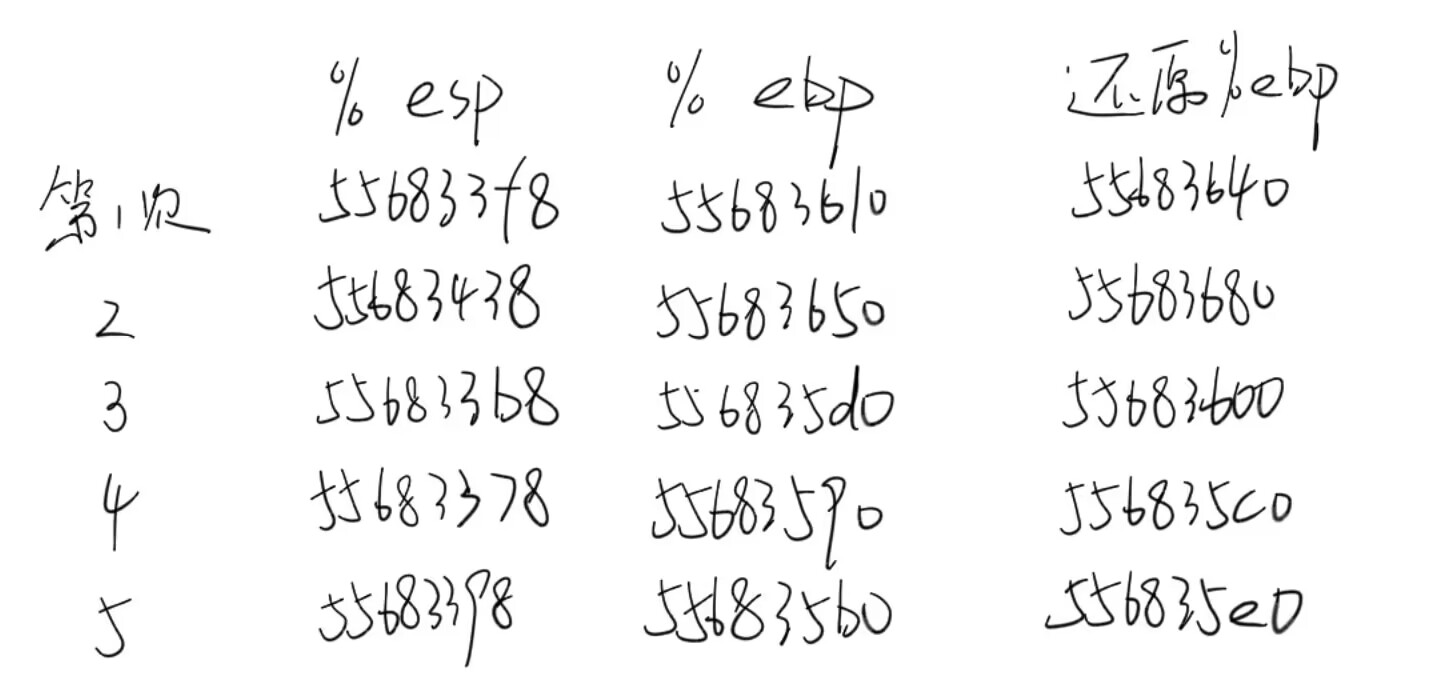 % esp % ebp 还原%ebp
第1次 556833f8 55683610 55683640
2 55683438 55683650 55683680
3 556833b8 556835d0 55683600
4 55683378 55683590 556835c0
5 55683398 556835b0 556835e0